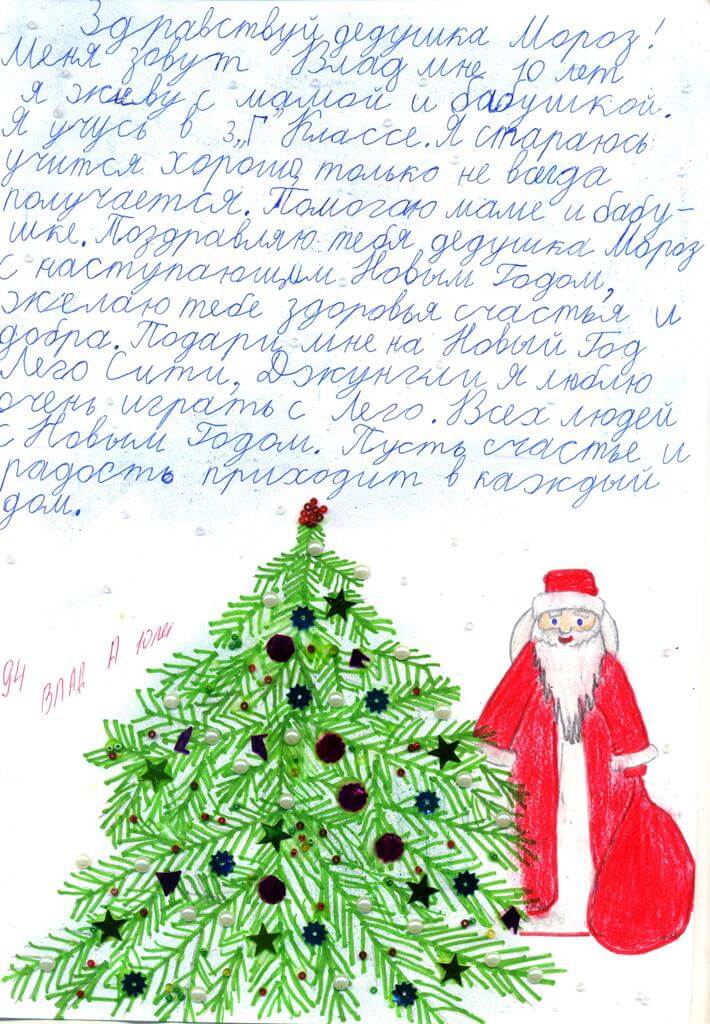 Здравствуй дедушка Мороз!
Меня зовут Влад мне 10 лет
я живу с мамой и бабушкой.
Я учусь в 3„Г" Классе. Я стараюсь
учится хорошо, только не всегда
получается. Помогаю маме и бабу-
шке. Поздравляю тебя дедушка Мороз
с наступающим Новым Годом,
желаю тебе здоровья счастья и
добра. Подари мне на Новый Год
Лего Сити, Джунгли я люблю
очень играть с Лего. Всех людей
с Новым Годом. Пусть счастье и
радость приходит в каждый
дом.
94 Влад А 10 лет